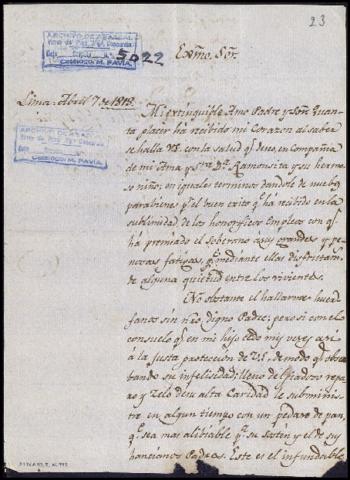 23
ARCHIVO DE ABASCAL
5022
Exmo. Sor.
Lima. Abril 7 de 1818.
Mi extinguible Amo Padre y Sor. Quanta
placer ha recibido mi Corazon al saber
se halla VE. con la salud q. deseo, en Compañia
de mi Ama y Sra. Da. Ramonsita y su hermoso
niño; en iguales terminos dandole de nuebo
parabienes pr. el buen exito q. ha recibido en la
sublimidad de los honorificos Empleos con q.
ha premiado el Soberano a sus grandes y penosas
fatigas, q. mediante ellos disfrutara
de alguna quietud entre los vivientes.
No obstante el hallarme huerfano
sin mi digno Padre; pero si con el
consuelo q. en mi hijo cedo mis veces así
a la justa proteccion de V.E., de modo q.
su infelicidad; lleno de
y zelo de su alta Caridad le subministre
en algun tiempo con un pedazo de pan,
q. sea mas alibiable pr. su sosten y el de sus
ancianos Padres. Este es el infundible